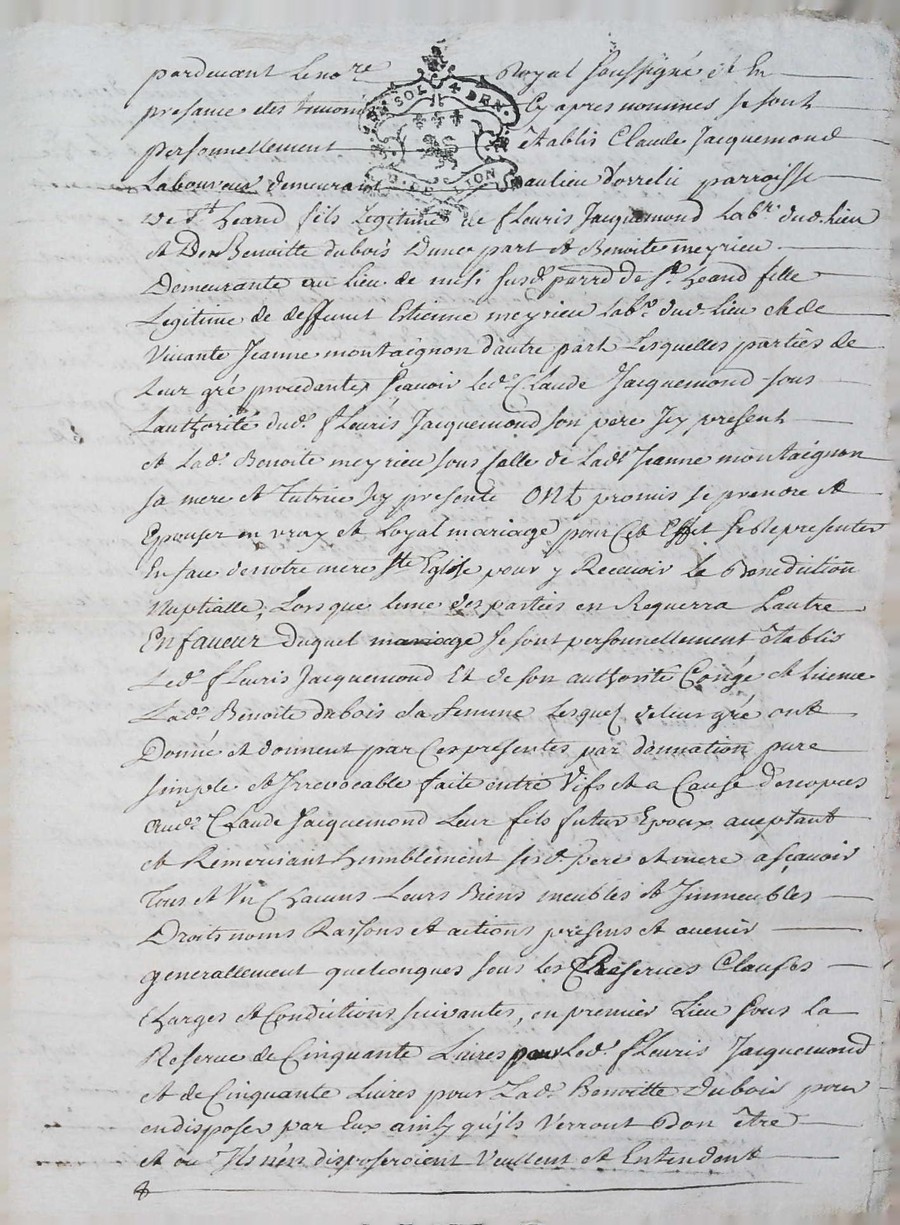 pardevant Le no.re Royal Soussigné et En
presance des temoins Cy apres nommes se sont
personnellement Etablis Claude Jacquemond
Laboureur demeurant au lieu parroisse
de St. heand fils Legitime de fleuris Jacquemond Lab.r dud. Lieu
et De Benoitte dubois Dune part et Benoite meyrieu
Demeurante au Lieu de susd. parr. de St. heand fille
Legitime de deffunt Estienne meyrieu Lab.r dud. Lieu et de
Vivante Jeanne montaignon d'autre part Lesquelles parties de
Leur gré procedantes Sçavoir Led. Claude Jacquemond sous
Lauthorité dud. fleuris Jacquemond son pere Jcy present
et Lad. Benoite meyrieu sous Celle de Lad. Jeanne montaignon
sa mere et tutrice Jcy presente ONt promis se prendre et
Epouser en vray et Loyal mariage pour Cet Effet se representer
En face de notre mere Ste Eglise pour y Recevoir La Benediction
Nuptialle, Lorsque Lune des parties en Requerra Lautre
En faveur duquel mariage se sont personnellement Etablis
Led. fleuris Jacquemond Et de son authorité Congé et licence
Lad. Benoite dubois sa femme Lesquels de leur gré ont
Donné et donnent par Ces presentes par donnation pure
simple et Irrevocable faite entre Vifs et a Cause de nopces
aud. Claude Jacquemond Leur fils futur Epoux aceptant
et Remerciant humblement sesd. pere et mere a sçavoir
Tous et Un Chacuns Leurs Biens meubles et Jmmeubles
Droits noms Raisons et actions presens et avenir
generallement quelconques sous les Reserves Clauses
Charges et Conditions suivantes, en premier Lieu sous La
Reserve de Cinquante Livres pour Led. fleuris Jacquemond
et de Cinquante Livres pour Lad. Benoitte Dubois pour
en disposer par Eux ainsy qu'ils Verront Bon être
et ou Ils n'en disposeroient Veullent et Entendent
SOLS 4 DEN.
G. DE LION